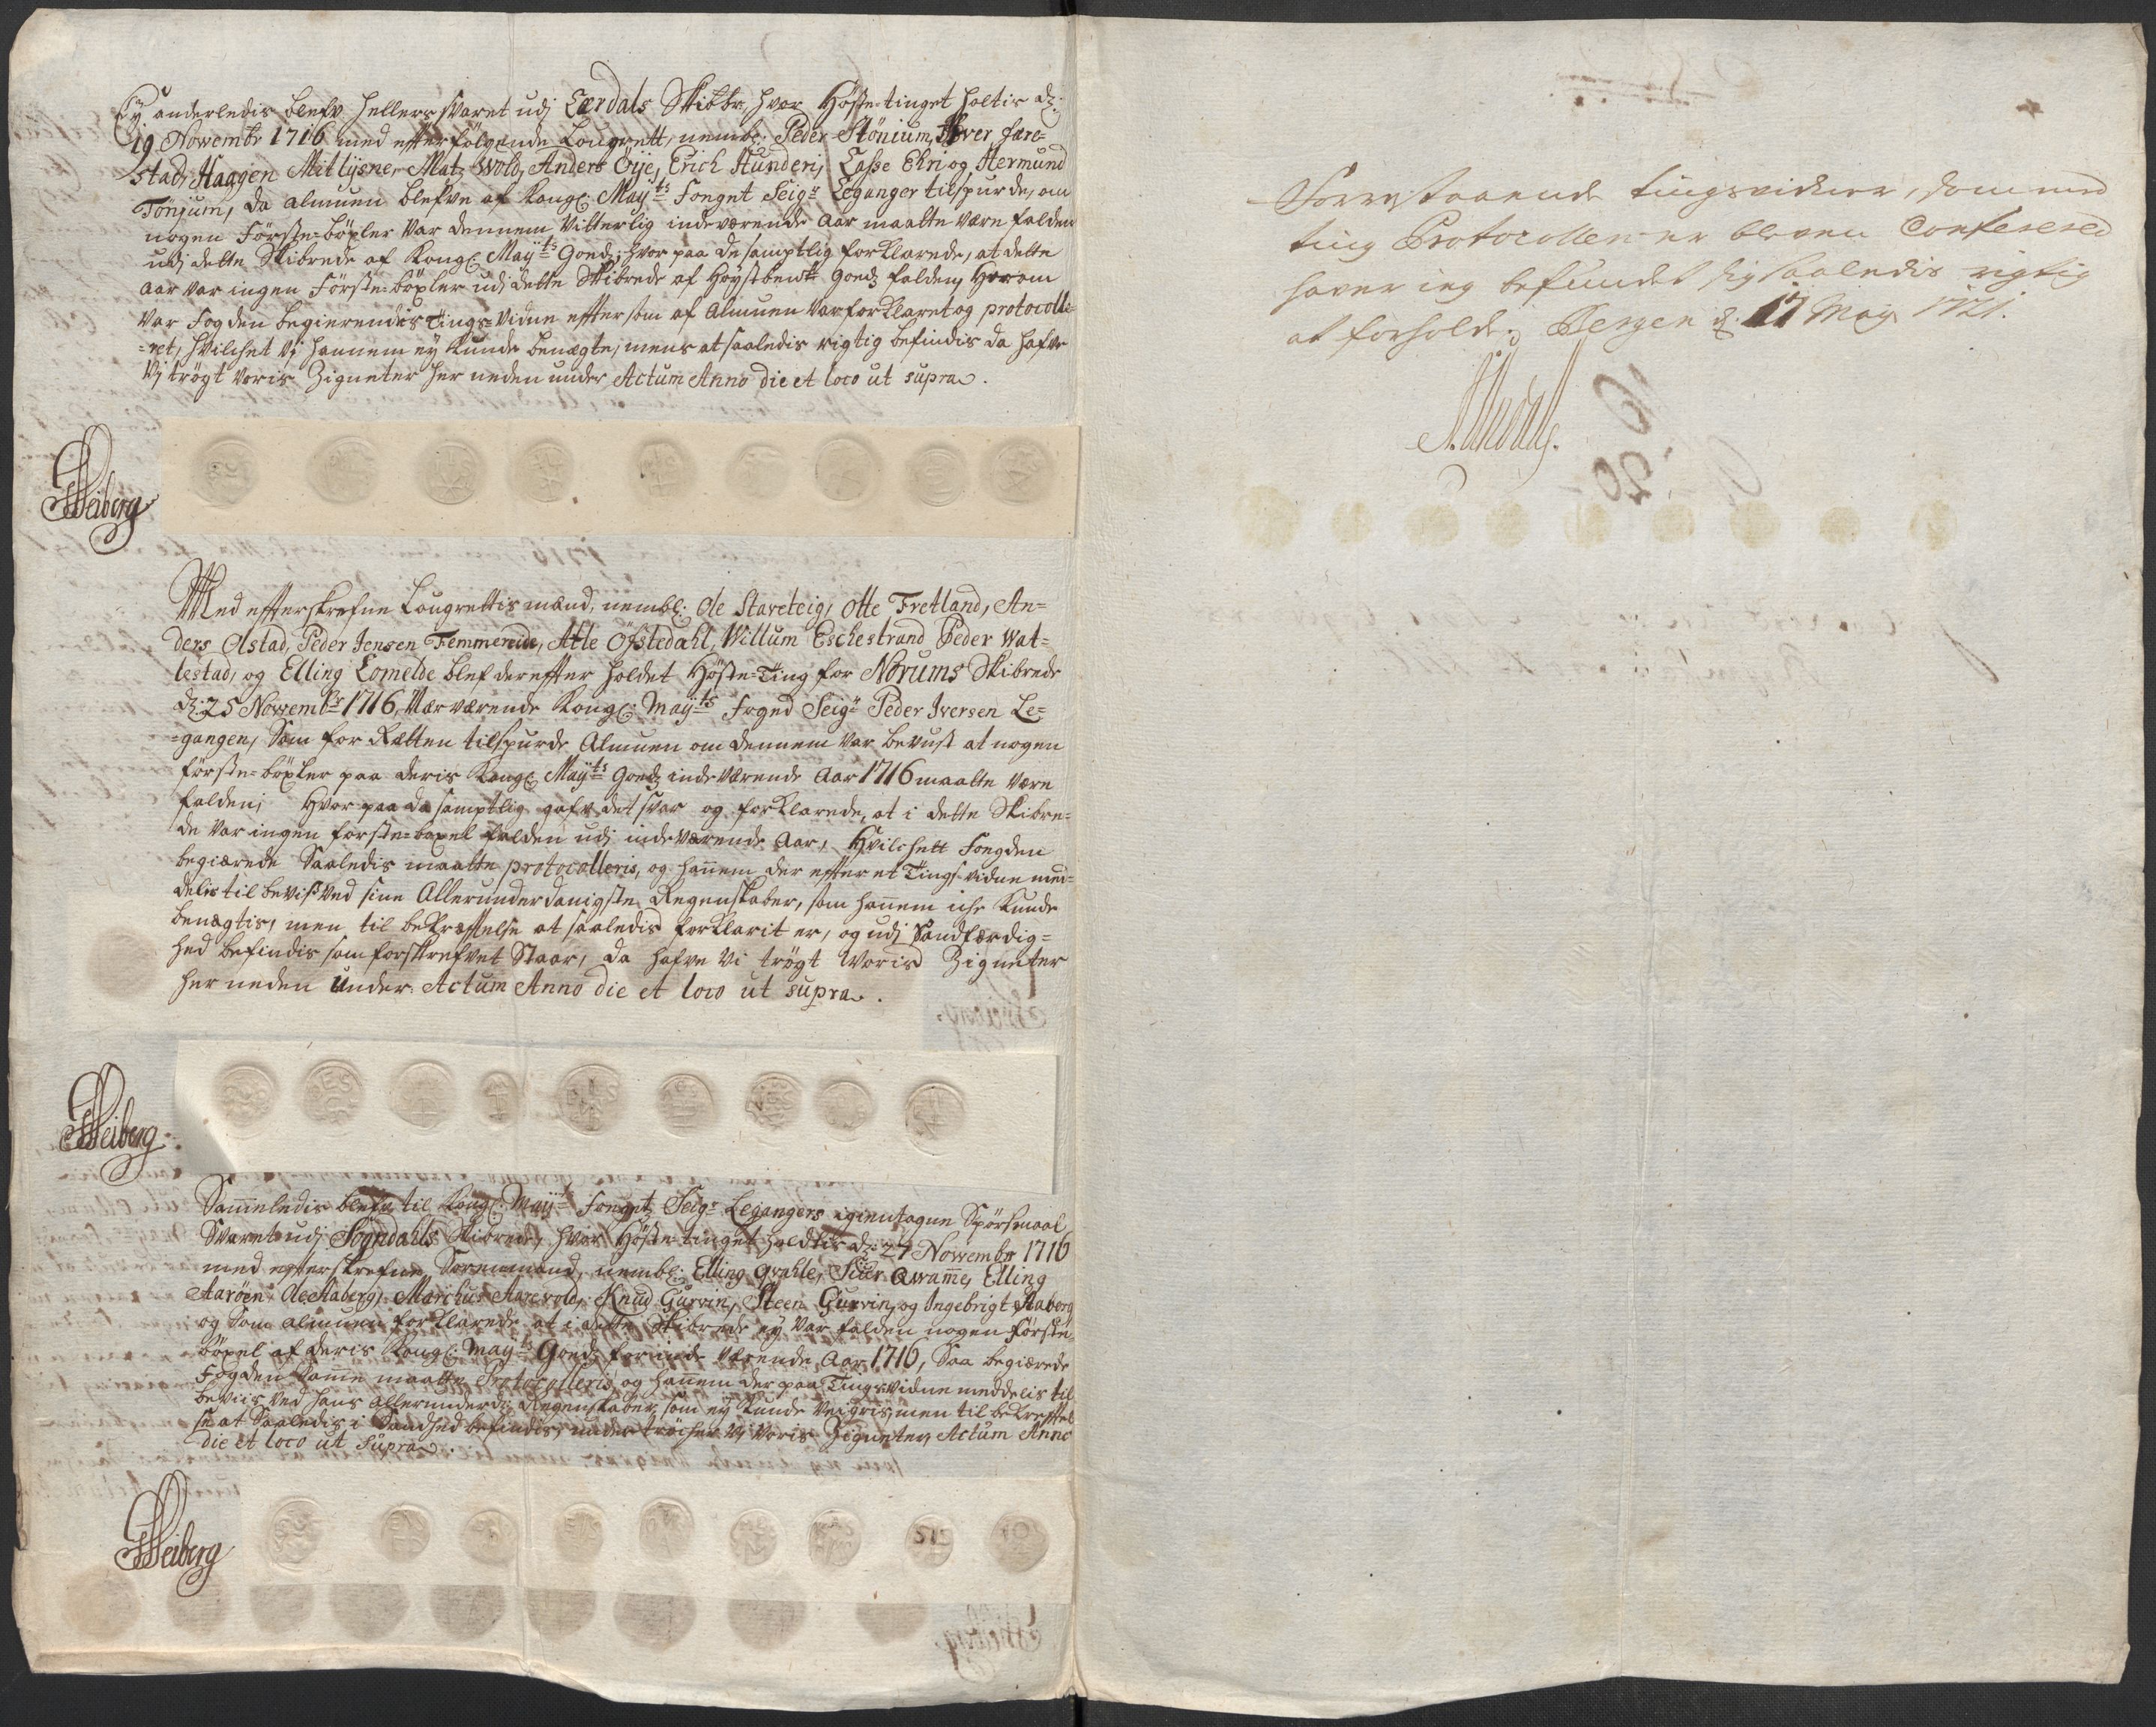 Ey anderledis blefv hellers svaret udj Lærdals Skibbr, hvor Höste-tinget holtis dΖ:
19 Novembr 1716 med efterfölgende Lougrett, nembl: Peder Stönium, Iver Fære-
stad, Haagen Mitlÿene, Matz Wold, Anders Öye, Erich Hunderj, Lasse Ehri og Hermund
Tönjum, da almuen blefve af Kongl: Maÿts Fouget Seigr Leganger tilspurde, om
nogen Förste-böxler var dennem vitterlig indeværende Aar maatte være falden
udj dette Skibrede af Kongl: Mayts Goedz; hvor paa de samptlig forklarede, at dette
aar var ingen Förste-böxler udj dette Skibrede af Höystbemte Goedz falden, Hvorom
var Fogden begierendis Tings-vidne efftersom af Almuen var forklaret og protocolle-
-ret, hvilchet vj hannem ey kunde benægte; mens at saaledis rigtig befindis da hafve
Vj trögt voris Zigneter her neden under Actum Anno die et loco ut supra.
Weiberg
Med efterskrefne Lougrettismænd, nembl: Ole Stareteig, Otte Fretland, An-
ders Olstad, Peder Jensen Femmereide, Atle Öfstedahl, Willum Eschestrand Peder Wat-
lestad, og Elling Lomelde blef derefter holdet Höste-Ting for Norums Skibrede
dΖ: 25 Novembr 1716, Nærværende Kongl: Mayts Foged Seigr Peder Iversen Le-
-gangen, Som for Retten tilspurde Almuen om dennem var bevust at nogen
förste-böxler paa deris Kongl Mayts Goedz indeværende Aar 1716 maatte være
falden; Hvor paa da samptlig gafv det svar og forklarede, at i dette Skibre-
de var ingen förste-böxel falden udj indeværende Aar, Hvilchett Fougden
begiærede Saaledis maatte protocolleris, og hannem der effter et Tings-vidne med-
delis til beviis ved sine Allerunderdanigste Regenskaber, som hannem iche kunde
benægtis, men til bekræfftelse at saaledis forklarit er, og udj Sandfærdig-
hed befindis som forskrefvet Staar, da hafve vi trögt Woris Zigneter
her neden under: Actum Anno die et loco ut supra.
Weiberg
Sammeledis blefv til Kongl: Mayts Fougetz Seigr Legangers igientagne Spörsmaal
Svaret udj Sogndahls Skibrede, hvor Höste-tinget holdtis dΖ: 27 Novembr 1716
med efterskrefne Sorenmænd, nembl: Elling Qvahle, Siur Qvamme, Elling
Aaröen Ole Aaberg, Marchus Aarevold, Knud Gurvin, Steen Gurvin, og Ingebrigt Aaberg
og Som almuen forklarede at i dette Skibrede ey var falden nogen förste
böxel af deris Kongl: Mayts Goedz for inde værende Aar 1716, Saa begiærede
Fogden Samme maatte Protocolleris og hannem der paa Tings-vidne meddelis til
beviis ved hans allerunderd: Regenskaber, som ey kunde veigris, men til bekrefftel
se at Saaledis i Sandhed befindis, under tröcher vj voris Zigneter, Actum Anno
die et loco ut supra.
Weiberg
Forrestaaende tingsvidner, som med
ting Protocollen er bleven Confereret
haver ieg befundet sig saaledis rigtig
at forholde; Bergen d. 17 May 1721.